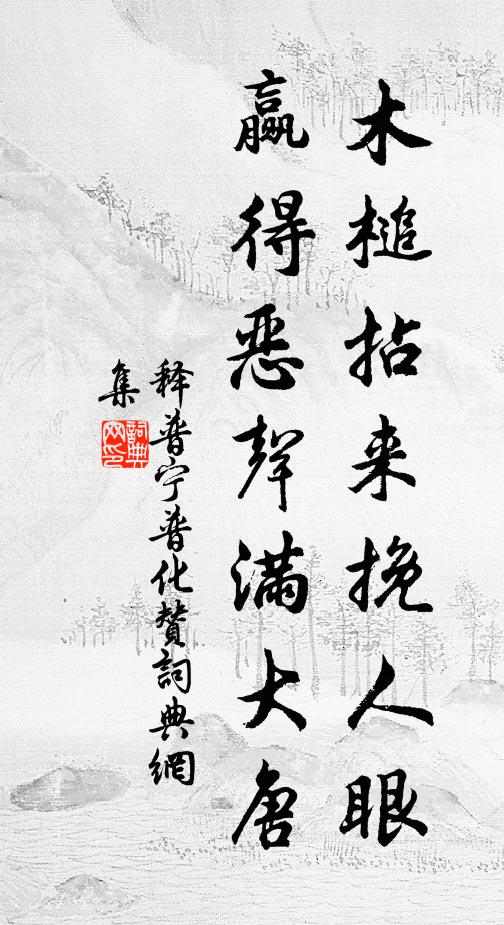 木槌拈来挽人眼
赢得恶声满大唐
释普宁普化赞词典網
集
詞典网印